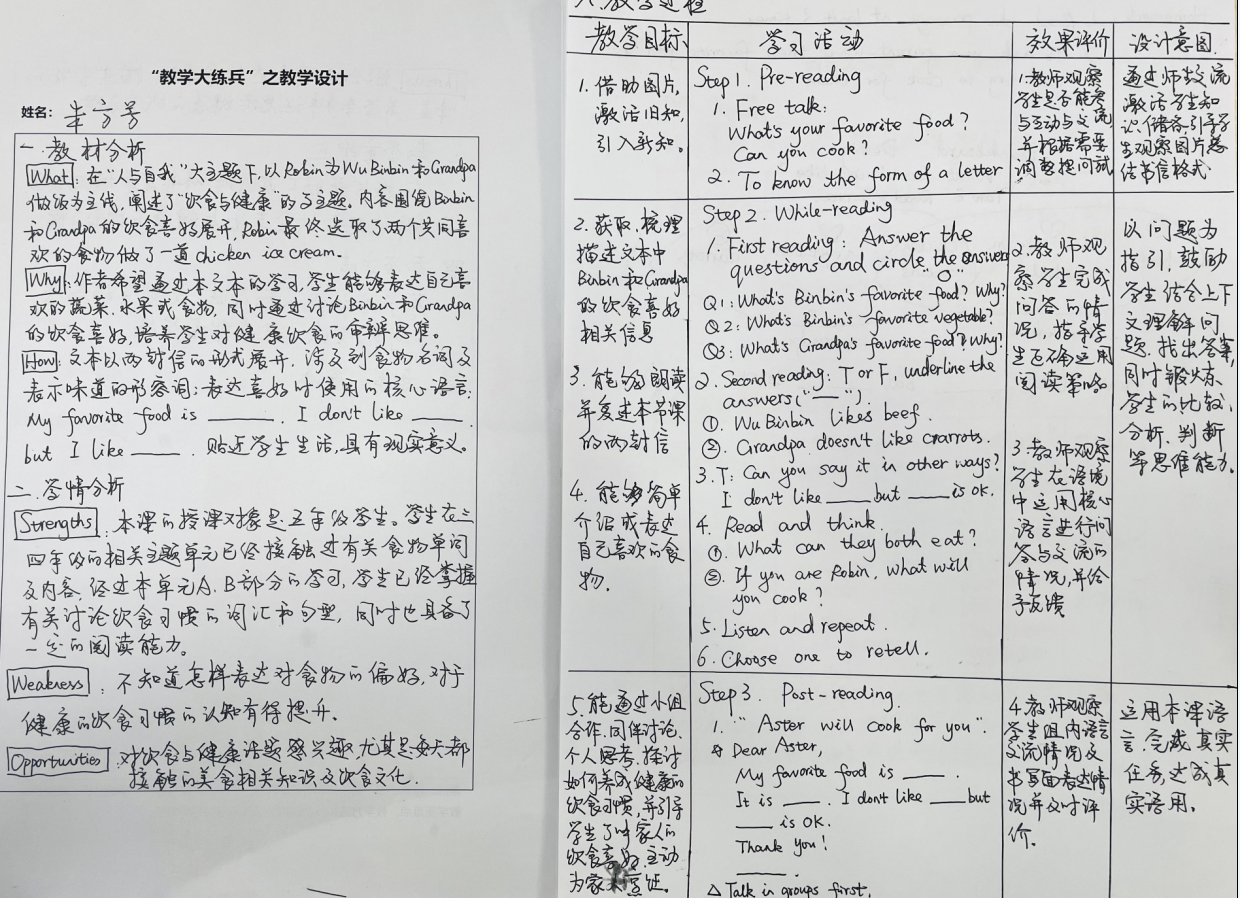 “教学大练兵”之教学设计
姓名：
一.教材分析
What：在“人与自我”大主题下,以Robin为Wu Binbin和Grandpa
做饭为主线,阐述了“饮食与健康”的子主题。内容围绕Binbin
和Grandpa的饮食喜好展开,Robin最终选取了两个共同喜
欢的食物做了一道chicken ice cream.
Why：作者希望通过本文本的学习,学生能够表达自己喜
欢的蔬菜、水果或食物,同时通过讨论Binbin和Grandpa
的饮食喜好,培养学生对健康饮食的审辩思维。
How：文本以两封信的形式展开,涉及到食物名词及
表示味道的形容词;表达喜好时使用的核心语言:
My favorite food is ____. I don't like ____,
but I like ____. 贴近学生生活,具有现实意义。
二.学情分析
Strengths：本课的授课对象是五年级学生。学生在三
四年级的相关主题单元已经接触过有关食物单词
及内容,经过本单元A、B部分的学习,学生已经掌握
有关讨论饮食习惯的词汇和句型,同时也具备了
一定的阅读能力。
Weakness：不知道怎样表达对食物的偏好,对于
健康的饮食习惯的认知有待提升.
Opportunities：对饮食与健康话题感兴趣,尤其是每天都
接触的美食相关知识及饮食文化.
教学过程
教学目标 学习活动 效果评价 设计意图.
1.借助图片,
激活旧知,
引入新知。
Step 1. Pre-reading
1. Free talk:
What's your favorite food?
Can you cook?
2. To know the form of a letter
1.教师观察
学生是否能参
与互动与交流,
并根据需要
调整提问
通过师生交流
激活学生知
识储备,引导学
生观察图片总
结书信格式.
2.获取、梳理
描述文本中
Binbin和Grandpa
的饮食喜好
相关信息
3.能够朗读
并复述本节课
的两封信
4.能够简单
介绍或表达
自己喜欢的食
物.
Step 2. While-reading
1. First reading: Answer the
questions and circle the answers
"O"
Q1: What's Binbin's favorite food? Why?
Q2: What's Binbin's favorite vegetable?
Q3: What's Grandpa's favorite food? Why?
2. Second reading: T or F, underline the
answers ("—").
①. Wu Binbin likes beef.
②. Grandpa doesn't like crarrots.
3. T: Can you say it in other ways?
I don't like ____ but ____ is OK.
4. Read and think.
①. What can they both eat?
②. If you are Robin, what will
you cook?
5. Listen and repeat.
6. Choose one to retell.
2.教师观
察学生完成
问答的情
况,指导学
生正确运用
阅读策略
3.教师观察
学生在语境
中运用核心
语言进行问
答与交流的
情况,并给
予反馈
以问题为
指引,鼓励
学生结合上下
文理解问
题,找出答案,
同时锻炼
学生的比较、
分析、判断
等思维能力.
5.能通过小组
合作、同伴讨论、
个人思考,探讨
如何养成健康的
饮食习惯,并引导
学生了解家人的
饮食喜好,主动
为家人烹饪。
Step 3. Post-reading
1. "Aster will cook for you".
☆ Dear Aster,
My favorite food is ____.
It is ____. I don't like ____ but
____ is OK.
Thank you!
____.
△ Talk in groups first,
4.教师观察
学生组内语言
交流情况及
书写面表达情
况并及时评
价.
运用本课语
言,完成真实
任务,达成真
实语用。